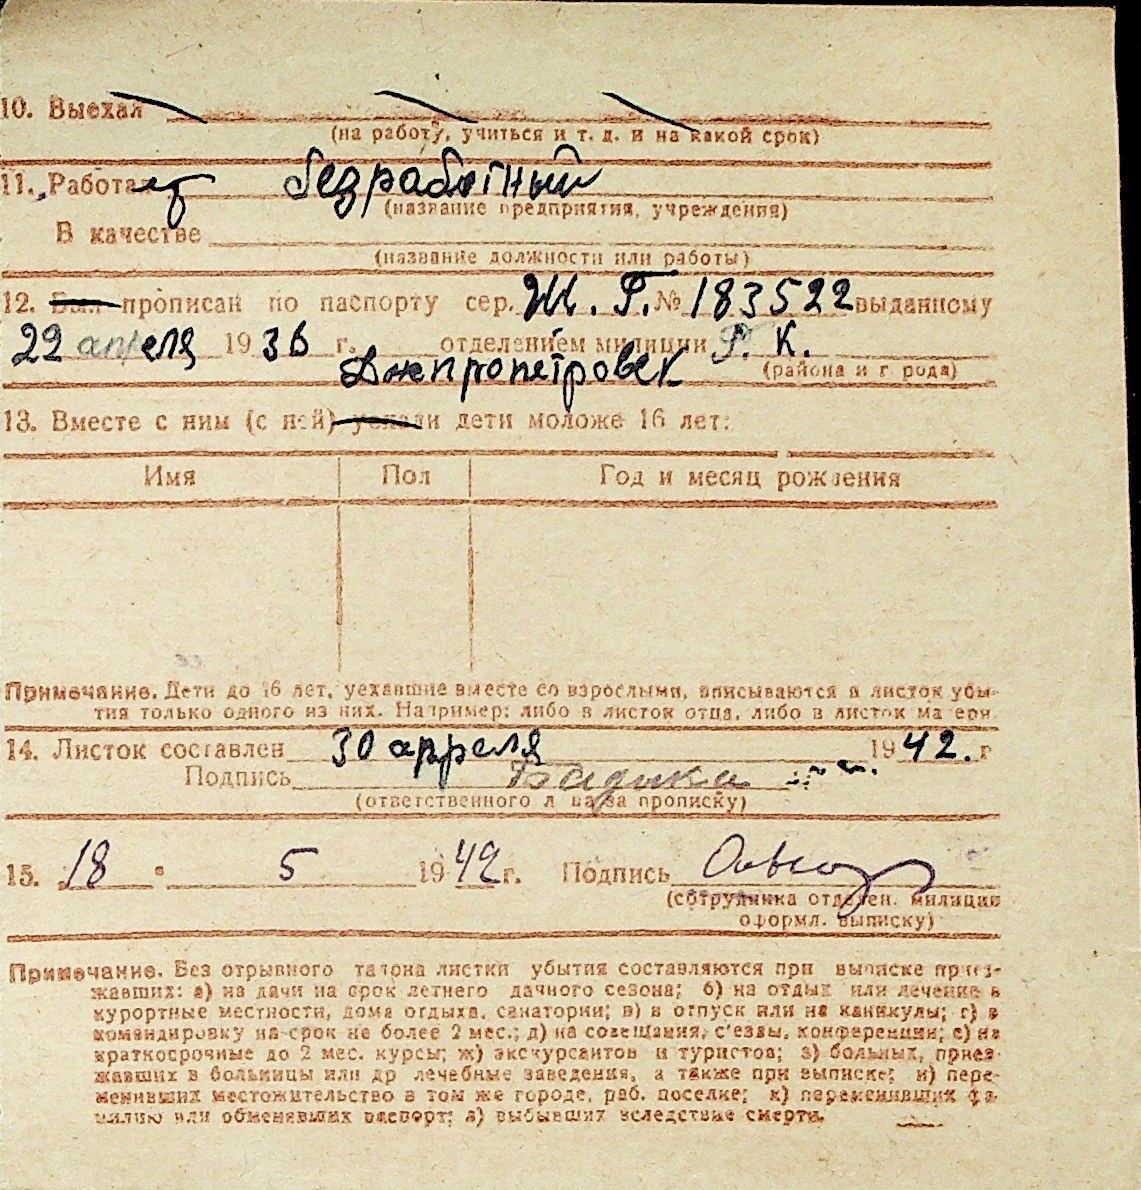 10. Выехал
(на работу, учиться и т. д. и на какой срок)
11. Работает безработный
(название предприятия, учреждения)
В качестве
(название должности или работы)
12. Был прописан по паспорту сер. Ж. Г. № 183522 выданному
22 апреля 1936 г. отделением милиции Р. К.
Днепропетровск
(района и города)
13. Вместе с ним (с ней) уехали дети моложе 16 лет:
Имя Пол Год и месяц рождения
Примечание. Дети до 16 лет, уехавшие вместе со взрослыми, вписываются в листок убы-
тия только одного из них. Например: либо в листок отца, либо в листок матери.
14. Листок составлен 30 апреля 1942. г
Подпись
(ответственного лица за прописку)
15. 18 5 1942 г. Подпись
(сотрудника отделен. милиции
оформл. выписку)
Примечание. Без отрывного талона листки убытия составляются при выписке приез-
жавших: а) на дачи на срок летнего дачного сезона; б) на отдых или лечение в
курортные местности, дома отдыха, санатории; в) в отпуск или на каникулы; г) в
командировку на срок не более 2 мес.; д) на совещания, с'езды, конференции; е) на
краткосрочные до 2 мес. курсы; ж) экскурсантов и туристов; з) больных, приез-
жавших в больницы или др лечебные заведения, а также при выписке; и) пере-
менивших местожительство в том же городе, раб. поселке; к) переменивших фа-
милию или обменявших паспорт; л) выбывших вследствие смерти.